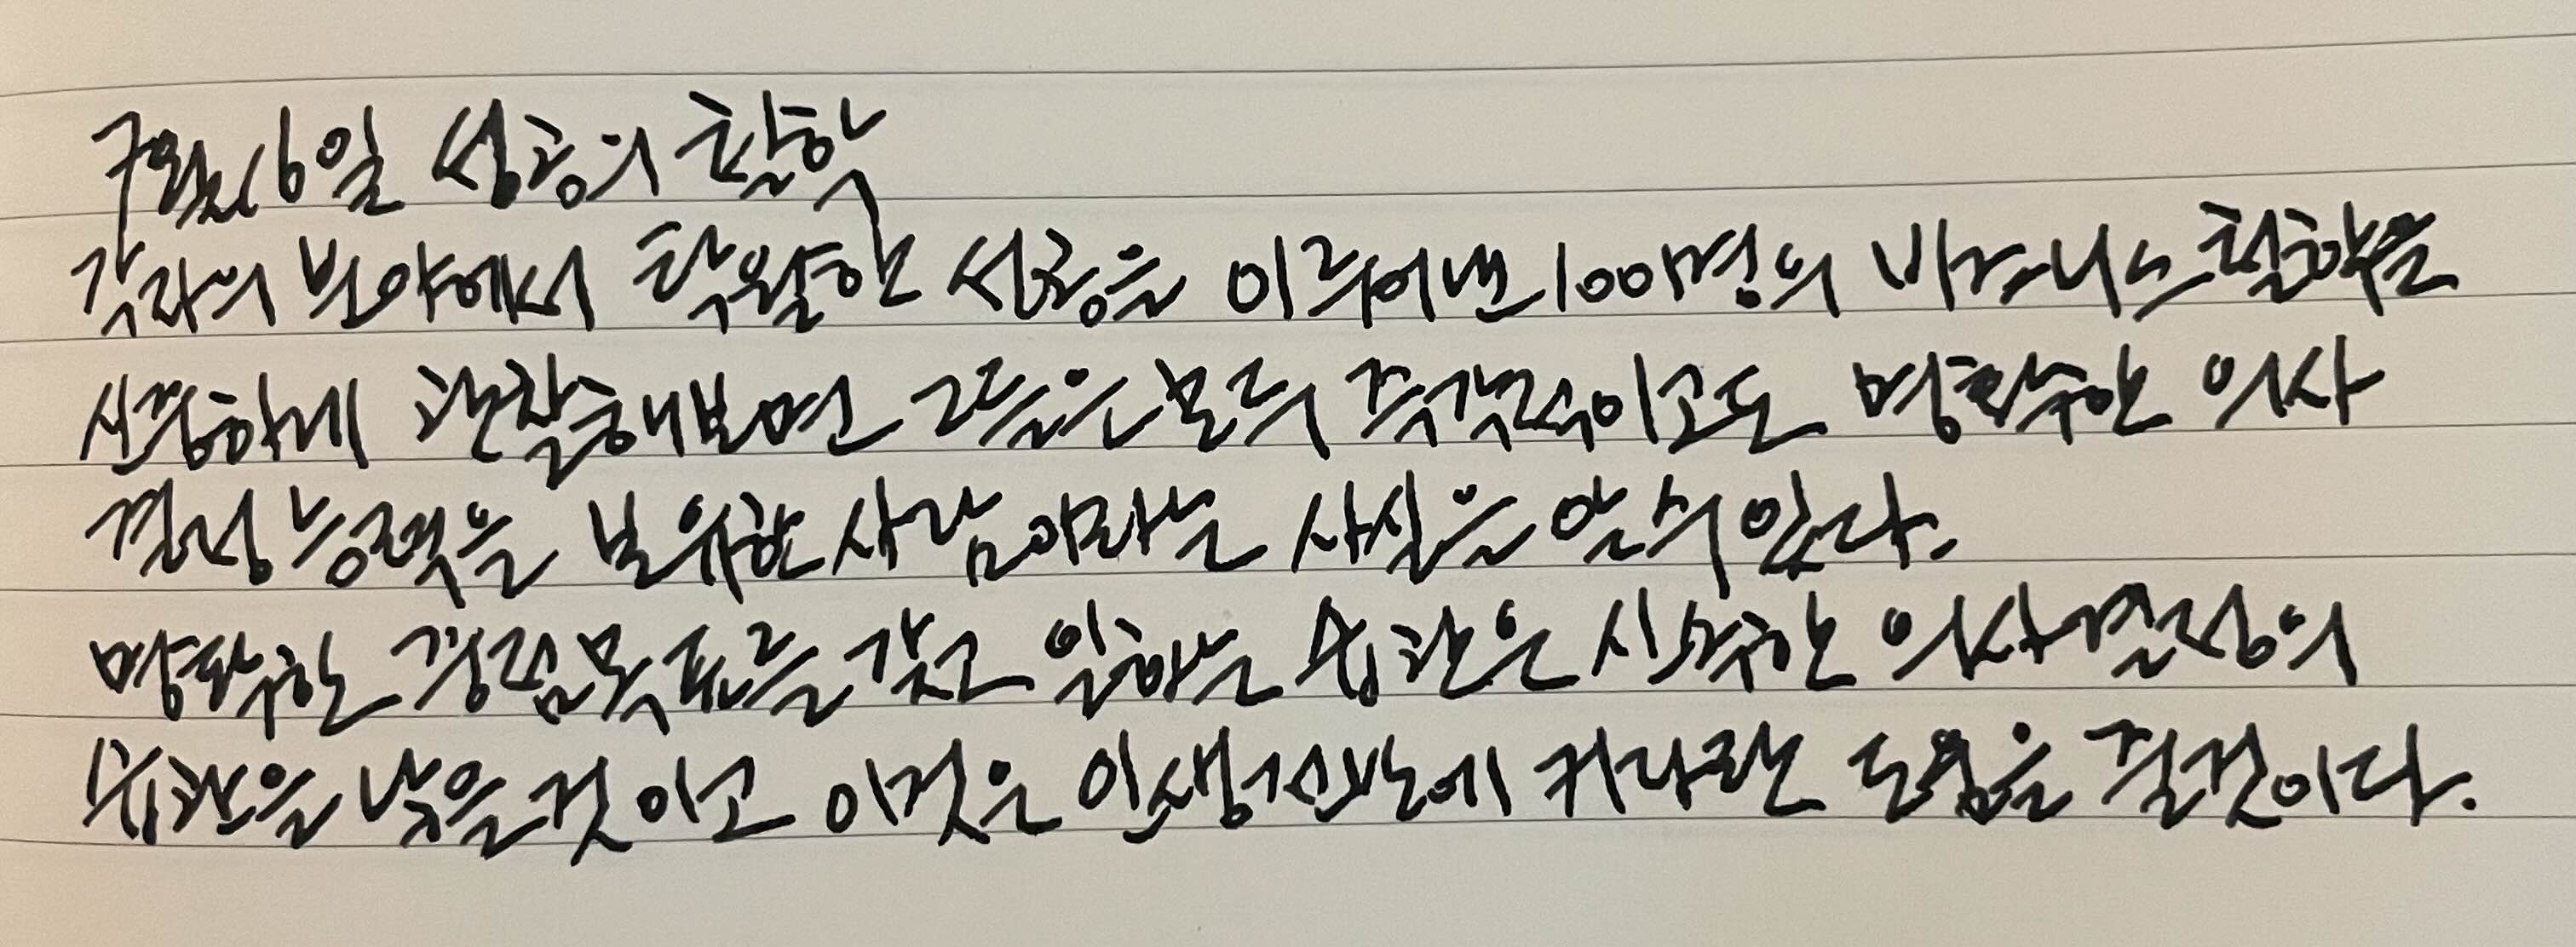 7월 16일 성공의 철학
각자의 분야에서 탁월한 성공을 이루어낸 100여명의 비즈니스 철학을
신중하게 관찰해보면 그들은 모두 즉각적이고도 명확한 의사
결정 능력을 보유한 사람이라는 사실을 알 수 있다.
명확한 중점목표를 갖고 일하는 습관은 신속한 의사결정의
습관을 낳을것이고 이것은 인생전반에 커다란 도움을 줄것이다.